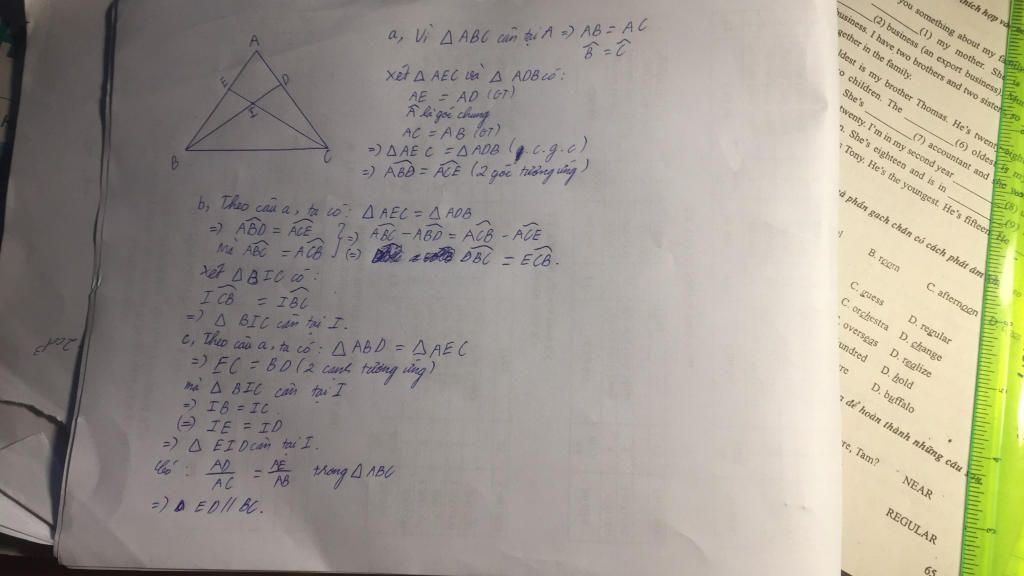 A
E
D
I
B
C
a, Vì △ABC cân tại A => AB = AC
B̂ = Ĉ
Xét △AEC và △ADB có:
AE = AD (GT)
Â là góc chung
AC = AB (GT)
=> △AEC = △ADB (c.g.c)
=> ABD = ACE (2 góc tương ứng)
b, Theo câu a, ta có: △AEC = △ADB
=> ABD = ACE } => ABC - ABD = ACB - ACE
Mà ABC = ACB (=) DBC = ECB.
Xét △BIC có:
ICB = IBC
=> △ BIC cân tại I.
c, Theo câu a, ta có: △ABD = △AEC
=> EC = BD (2 cạnh tương ứng)
mà △ BIC cân tại I
=> IB = IC
(=) IE = ID
=> △ EID cân tại I.
có: AD/AC = AE/AB trong △ABC
=> ED // BC.
2cm³
thích hợp vo
you something about my family
(1) my mother. She
(2) business (an export business)
usiness. I have two brothers and two sister
gether in the family.
ldest is my brother Thomas. He's twen
o children. The (6) oldest is m
She's (7) accountant and
wenty. I'm in my second year
n. She's eighteen and is in
Tony. He's the youngest. He's fifteen
phần gạch chân có cách phát âm
B. room
C. afternoon
C. guess
D. regular
C. orchestra
D. change
C. overseas
D. realize
undred
D. hold
re
D. buffalo
để hoàn thành những câu
re, Tam?
NEAR
REGULAR
65